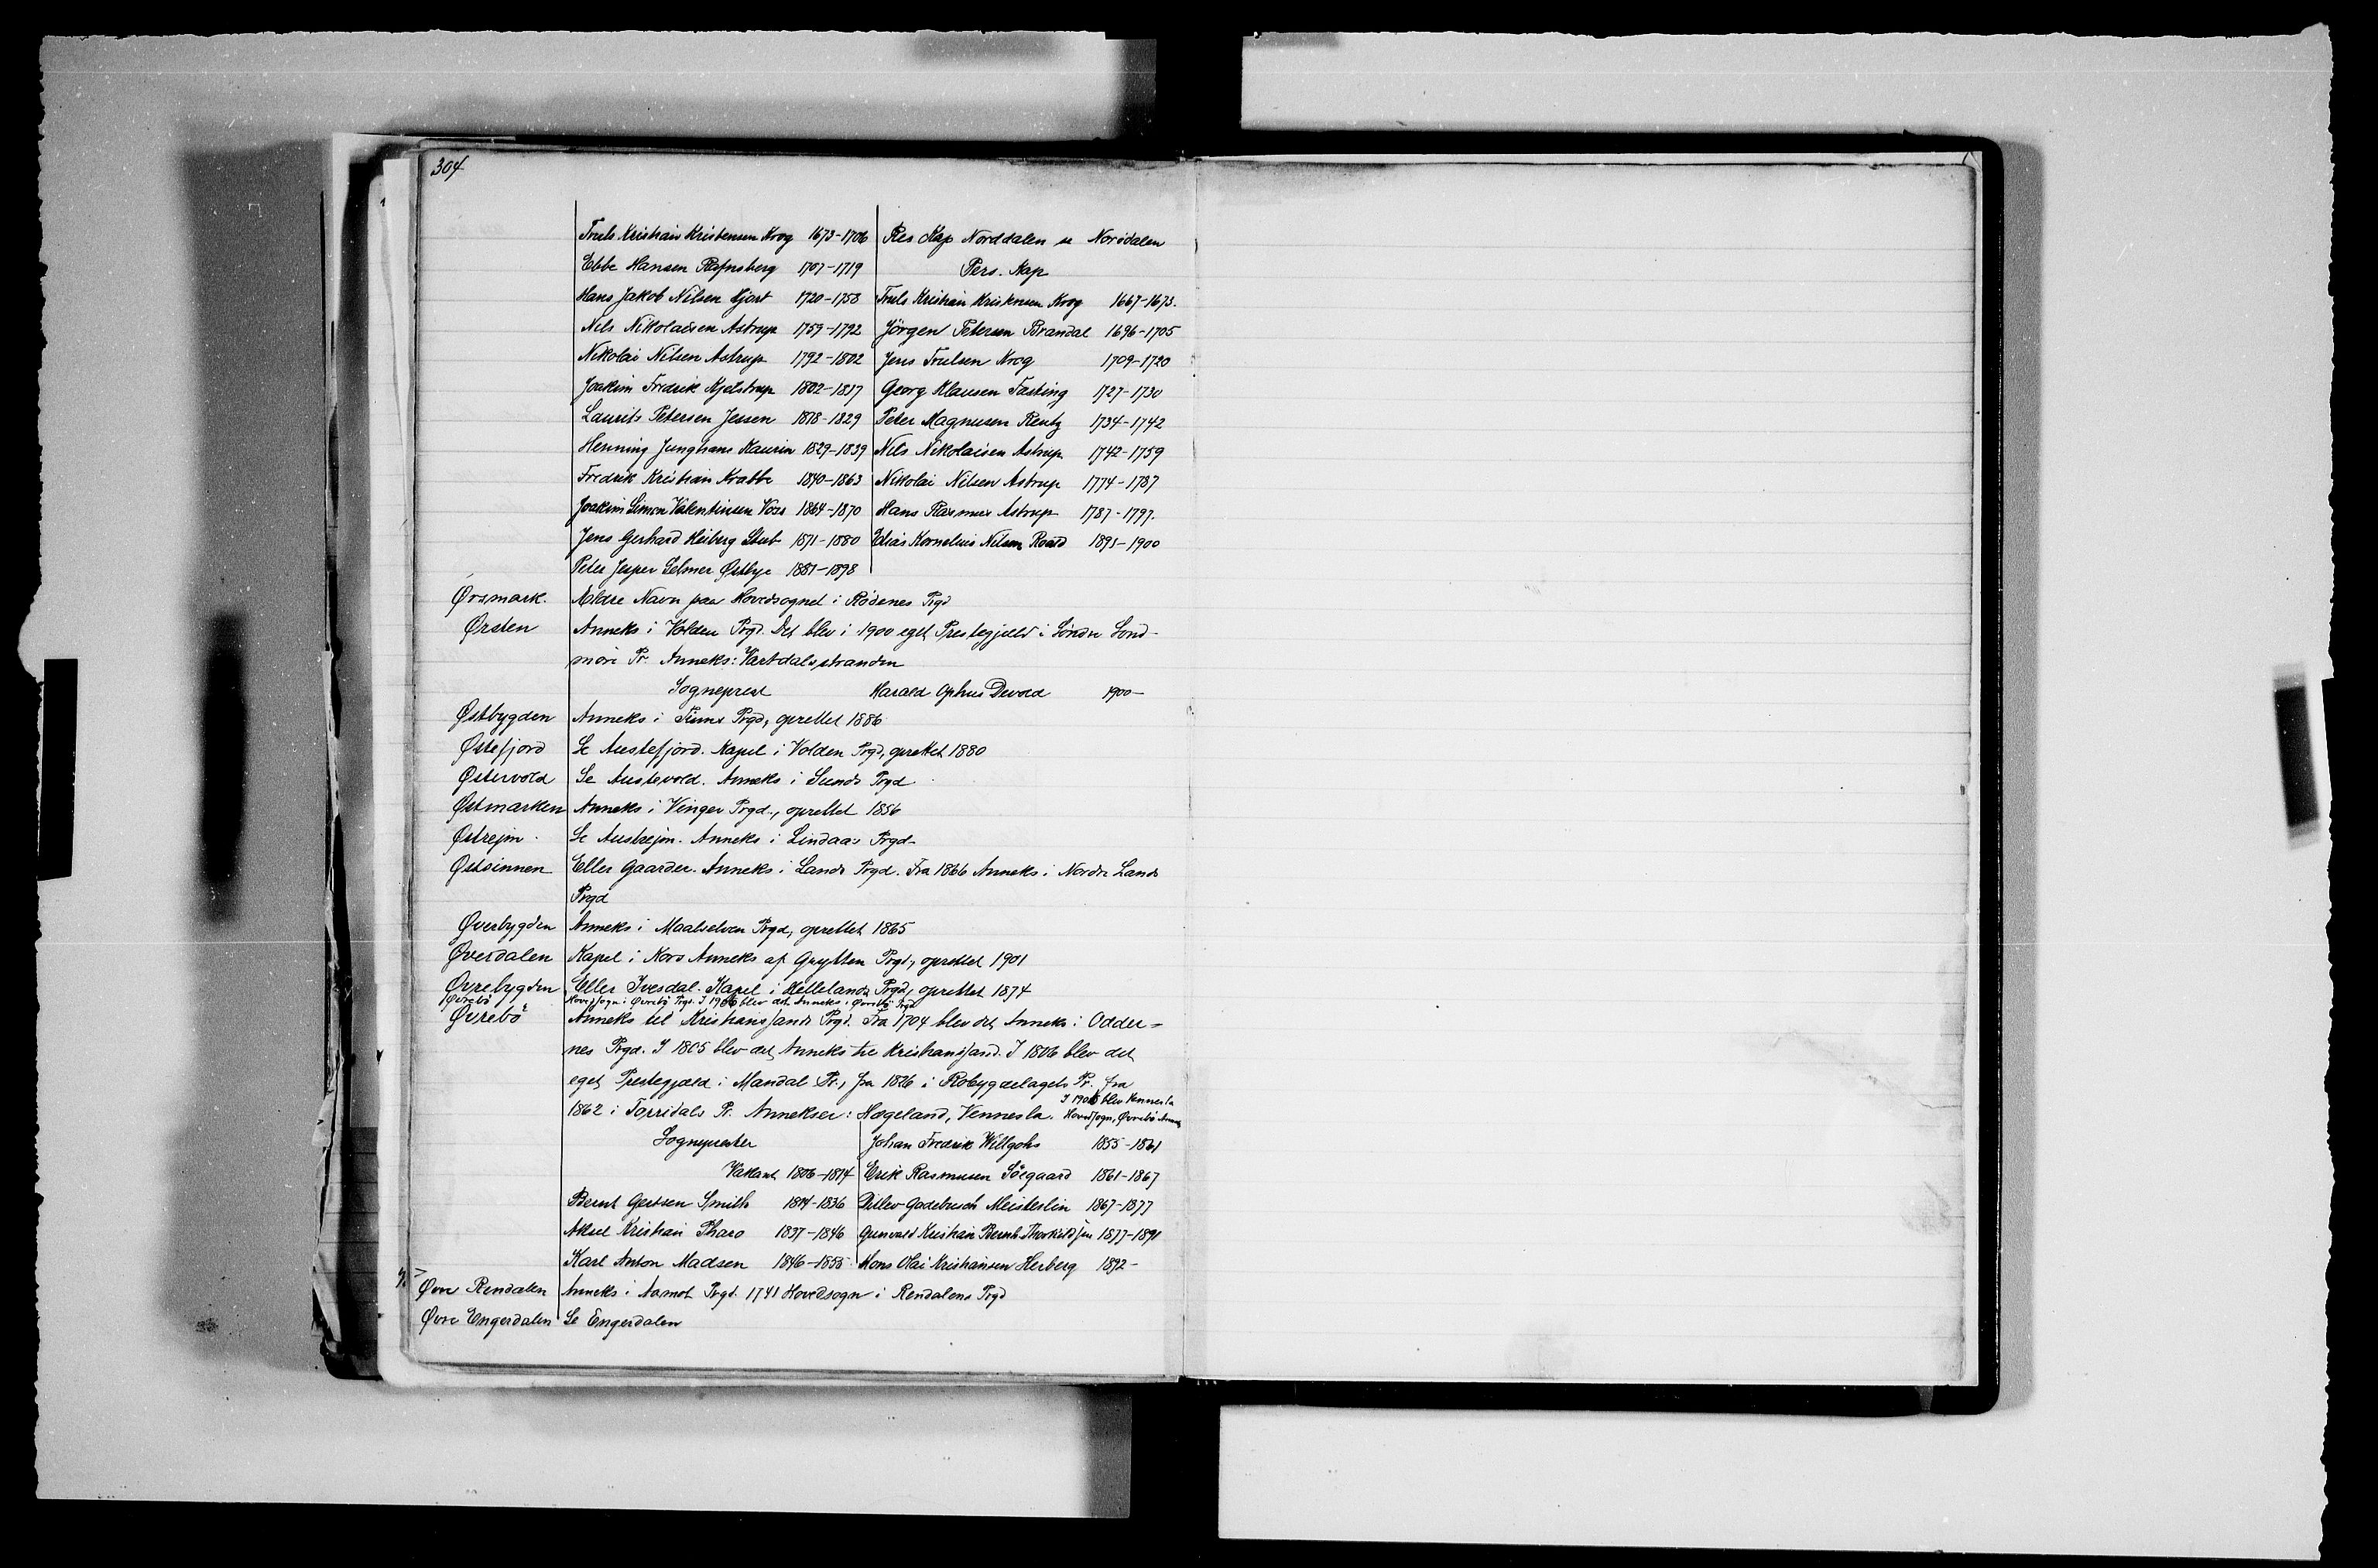 304
Truls Kristian Kristensen Krog 1673-1706 Res Kap Norddalen se Norddalen
Ebbe Hansen Rafnsberg 1707-1719 Pers. Kap
Hans Jakob Nilsen Hjort 1720-1758 Truls Kristian Kristensen Krog 1667-1673.
Nils Nikolaisen Astrup 1759-1792 Jörgen Petersen Brandal 1696-1705
Nikolai Nilsen Astrup 1792-1802 Jens Trulsen Krog 1709-1720
Joakim Fredrik Kjelstrup 1802-1817 Georg Klausen Fasting 1727-1730
Laurits Petersen Jessen 1818-1829 Peter Magnusen Rentz 1734-1742
Henning Junghans Kaurin 1829-1839 Nils Nikolaisen Astrup 1742-1759
Fredrik Kristian Krabbe 1840-1863 Nikolai Nilsen Astrup 1774-1787
Joakim Simon Valentinsen Voss 1864-1870 Hans Rasmus Astrup 1787-1797.
Jens Gerhard Heiberg Stub 1871-1880 Elias Kornelius Nilsen Roald 1891-1900
Peter Jesper Selmer Østbye 1881-1898
Ørsmark. Ældre Navn paa Hovedsognet i Rödenes Prgd
Ørsten Anneks i Volden Prgd. Det blev i 1900 eget Prestegjeld i Söndre Sönd-
möre Pr. Anneks: Vartdalsstranden
Sogneprest Harald Ophus Devold 1900-
Østbygden Anneks i Tinns Prgd, oprettet 1886
Østefjord Se Austefjord. Kapel i Volden Prgd, oprettet 1880
Østervold Se Austevold. Anneks i Sunds Prgd
Østmarken Anneks i Vinger Prgd., oprettet 1856
Østrejm. Se Austrejm. Anneks i Lindaas Prgd.
Østsinnen Eller Gaarder. Anneks i Lands Prgd. Fra 1866 Anneks i Nordre Lands
Prgd
Øverbygden Anneks i Maalselven Prgd, oprettet 1865
Øverdalen Kapel i Kors Anneks af Grytten Prgd, oprettet 1901
Øvrebygden Eller Ivesdal. Kapel i Hellelands Prgd, oprettet 1874
Øvrebö Hovedsogn i Øvrebö Prgd. I 1906 blev det Anneks i Øvrebö Prgd
Øvrebö Anneks til Kristiansands Prgd. Fra 1704 blev det Anneks i Odder=
nes Prgd. I 1805 blev det Anneks til Kristiansand. I 1806 blev det
eget Prestegjeld i Mandal Pr., fra 1826 i Robygdelagets Pr. fra
1862 i Torridals Pr. Annekser: Hægeland, Vennesla. I 1906 blev Vennesla
Hovedsogn, Øvrebö Anneks
Sogneprester Johan Fredrik Willgohs 1855-1861
Vakant 1806-1814 Erik Rasmusen Söegaard 1861-1867
Bernt Gertsen Smith 1814-1836 Ditlev Gadebusch Meisterlin 1867-1877
Aksel Kristian Tharo 1837-1846 Gunvald Kristian Bernh. Thorkildsen 1877-1891
Karl Anton Madsen 1846-1855 Mons Olai Kristiansen Herberg 1892-
Øvre Rendalen Anneks i Aamot Prgd. 1741 Hovedsogn i Rendalens Prgd
Øvre Engerdalen Se Engerdalen